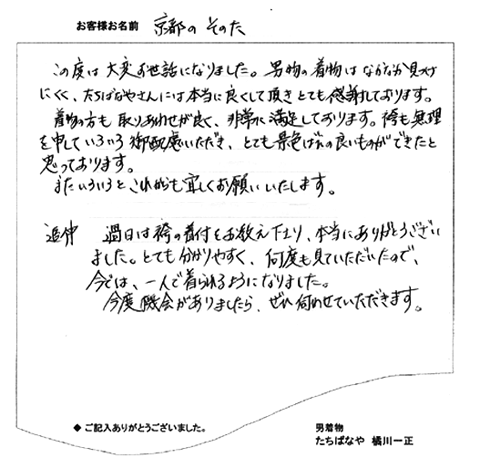 お客様お名前 京都の そのた
この度は大変お世話になりました。男物の着物はなかなか見つけ
にくく、たちばなやさんには本当に良くして頂きとても感謝しております。
着物の方も取りあわせが良く、非常に満足しております。袴も無理
を申していろいろ御配慮いただき、とても景色ばえの良いものができたと
思っております。
またいろいろとこれからも宜しくお願いいたします。
追伸 過日は袴の着付をお教え下さり、本当にありがとうござい
ました。とても分かりやすく、何度も見ていただいたので、
今では、一人で着られるようになりました。
今度機会がありましたら、ぜひ伺わせていただきます。
◆ ご記入ありがとうございました。
男着物
たちばなや 橘川一正